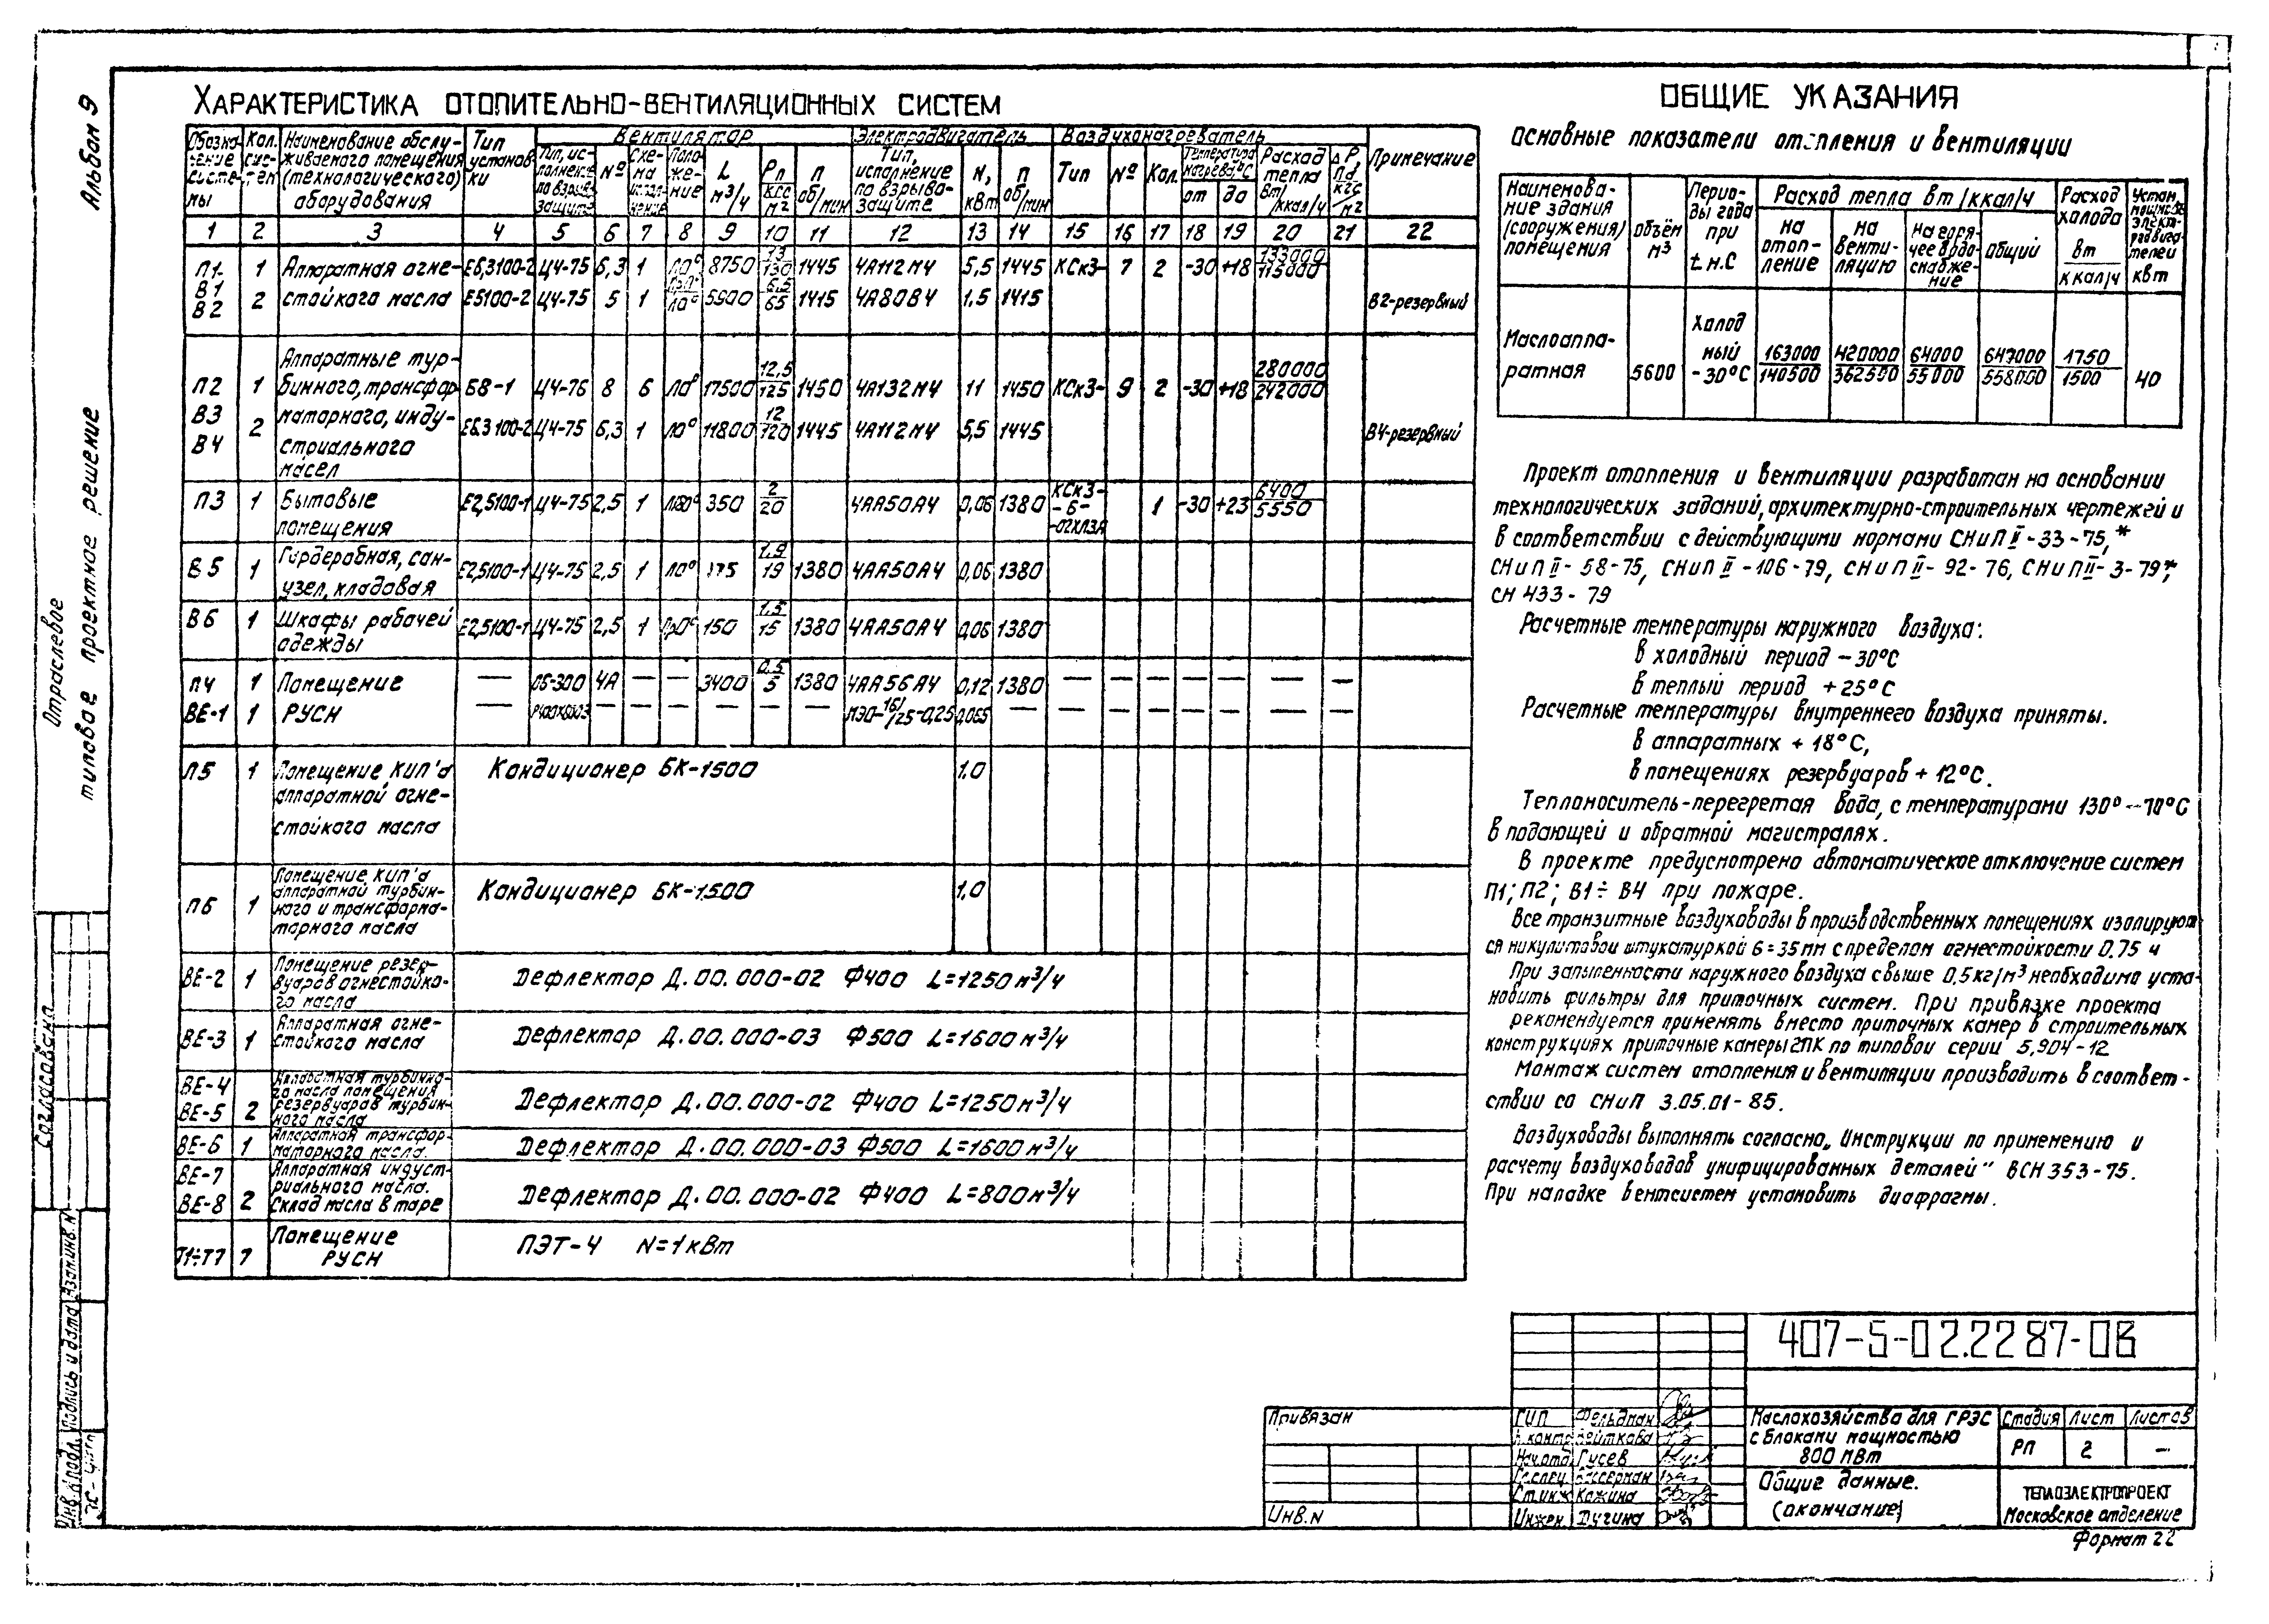 Альбом 9
Отраслевое
типовое проектное решение
Характеристика отопительно-вентиляционных систем
Обозначение системы | Кол. систем | Наименование обслуживаемого помещения (технологического) оборудования | Тип установки | Вентилятор | Электродвигатель | Воздухонагреватель | Примечание
Тип, исполнение по взрывозащите | № | Схема исполнение | Положение | L м³/ч | Рп кгс/м² | п об/мин | Тип, исполнение по взрывозащите | N, кВт | п об/мин | Тип | № | Кол. | Температура нагрева, °С от до | Расход тепла Вт/ккал/ч | ΔР, Па кгс/м²
1 2 3 4 5 6 7 8 9 10 11 12 13 14 15 16 17 18 19 20 21 22
П1 1 Аппаратная огне- Е6,3100-2 Ц4-75 6,3 1 Л0° 8750 13/130 1445 4А112М4 5,5 1445 КСк3- 7 2 -30 +18 133000/115000
В1 В2 2 стойкого масла Е5100-2 Ц4-75 5 1 Пр0°/Л0° 5900 6,5/65 1415 4А80В4 1,5 1415 В2-резервный
Аппаратные тур-
П2 1 бинного, трансфор Б8-1 Ц4-76 8 6 Л0° 17500 12,5/125 1450 4А132М4 11 1450 КСк3- 9 2 -30 +18 280000/242000
В3 В4 2 маторного, инду- Е6,3100-2 Ц4-75 6,3 1 Л0° 11800 12/120 1445 4А112М4 5,5 1445 В4-резервный
стриального
масел
П3 1 Бытовые Е2,5100-1 Ц4-75 2,5 1 350 2/20 4АА50А4 0,06 1380 КСк3- 1 -30 +23 6400/5550
помещения - 6 -
-02ХЛ3А
В5 1 Гардеробная, сан- Е2,5100-1 Ц4-75 2,5 1 Л0° 1,9/19 1380 4АА50А4 0,06 1380
узел, кладовая
В6 1 Шкафы рабочей Е2,5100-1 Ц4-75 2,5 1 Пр0° 150 1,5/15 1380 4АА50А4 0,06 1380
одежды
П4 1 Помещение — 06-300 4А — — 3400 0,5/5 1380 4АА56А4 0,12 1380 — — — — — — —
ВЕ-1 1 РУСН — — — — — — — МЭО-16/25-0,25 0,065 — — — — — — — —
П5 1 Помещение КИП'а Кондиционер БК-1500 1,0
аппаратной огне-
стойкого масла
П6 1 Помещение КИП'а Кондиционер БК-1500 1,0
аппаратной турбин-
ного и трансформа-
торного масла
ВЕ-2 1 Помещение резер- Дефлектор Д.00.000-02 Ф400 L=1250 м³/ч
вуаров огнестойко-
го масла
ВЕ-3 1 Аппаратная огне- Дефлектор Д.00.000-03 Ф500 L=1600 м³/ч
стойкого масла
ВЕ-4 Аппаратная турбинно-
го масла помещения
ВЕ-5 2 резервуаров турбин- Дефлектор Д.00.000-02 Ф400 L=1250 м³/ч
ного масла
ВЕ-6 1 Аппаратная трансфор- Дефлектор Д.00.000-03 Ф500 L=1600 м³/ч
маторного масла.
ВЕ-7 Аппаратная индуст-
риального масла.
ВЕ-8 2 Склад масла в таре Дефлектор Д.00.000-02 Ф400 L=800 м³/ч
Т1÷Т7 7 Помещение ПЭТ-4 N=1кВт
РУСН
Общие указания
Основные показатели отопления и вентиляции
Наименование здания (сооружения) помещения | Объём м³ | Периоды года при t.н.С | Расход тепла вт/ккал/ч | Расход холода вт/ккал/ч | Устан. мощность электродвигателей квт
на отопление | на вентиляцию | на горячее водоснабжение | Общий
Маслоаппаратная | 5600 | Холодный -30°С | 163000/140500 | 420000/362500 | 64000/55000 | 647000/558000 | 1750/1500 | 40
Проект отопления и вентиляции разработан на основании
технологических заданий, архитектурно-строительных чертежей и
в соответствии с действующими нормами СНиП II-33-75,*
СНиП II-58-75, СНиП II-106-79, СНиП II-92-76, СНиП II-3-79*,
СН 433-79
Расчетные температуры наружного воздуха:
в холодный период -30°С
в теплый период +25°С
Расчетные температуры внутреннего воздуха приняты.
в аппаратных +18°С,
в помещениях резервуаров +12°С.
Теплоноситель-перегретая вода, с температурами 130°-70°С
в подающей и обратной магистралях.
В проекте предусмотрено автоматическое отключение систем
П1; П2; В1÷В4 при пожаре.
Все транзитные воздуховоды в производственных помещениях изолируют
ся никулитовой штукатуркой б=35мм с пределом огнестойкости 0.75 ч
При запыленности наружного воздуха свыше 0,5кг/м³ необходимо уста-
новить фильтры для приточных систем. При привязке проекта
рекомендуется применять вместо приточных камер в строительных
конструкциях приточные камеры 2ПК по типовой серии 5,904-12
Монтаж систем отопления и вентиляции производить в соответ-
ствии со СНиП 3.05.01-85.
Воздуховоды выполнять согласно „Инструкции по применению и
расчету воздуховодов унифицированных деталей" ВСН 353-75.
При наладке вентсистем установить диафрагмы.
407-5-02.22 87-ОВ
Привязан
Инв.N
ГИП Фельдман
Н.контр Зейткова
Нач.отд. Гусев
Гл.спец. Вассерман
Ст.инж Кожина
Инжен. Дугина
Маслохозяйства для ГРЭС
с блоками мощностью
800 МВт
Стадия Лист Листов
РП 2 —
Общие данные.
(окончание)
ТЕПЛОЭЛЕКТРОПРОЕКТ
Московское отделение
Формат 22
Согласовано
Инв.N подл. Подпись и дата Взам.инв.N